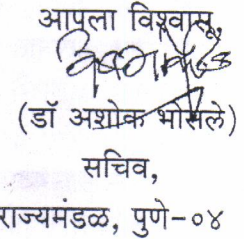 आपला विश्वासू,
(डॉ अशोक भोसले)
सचिव,
राज्यमंडळ, पुणे-०४